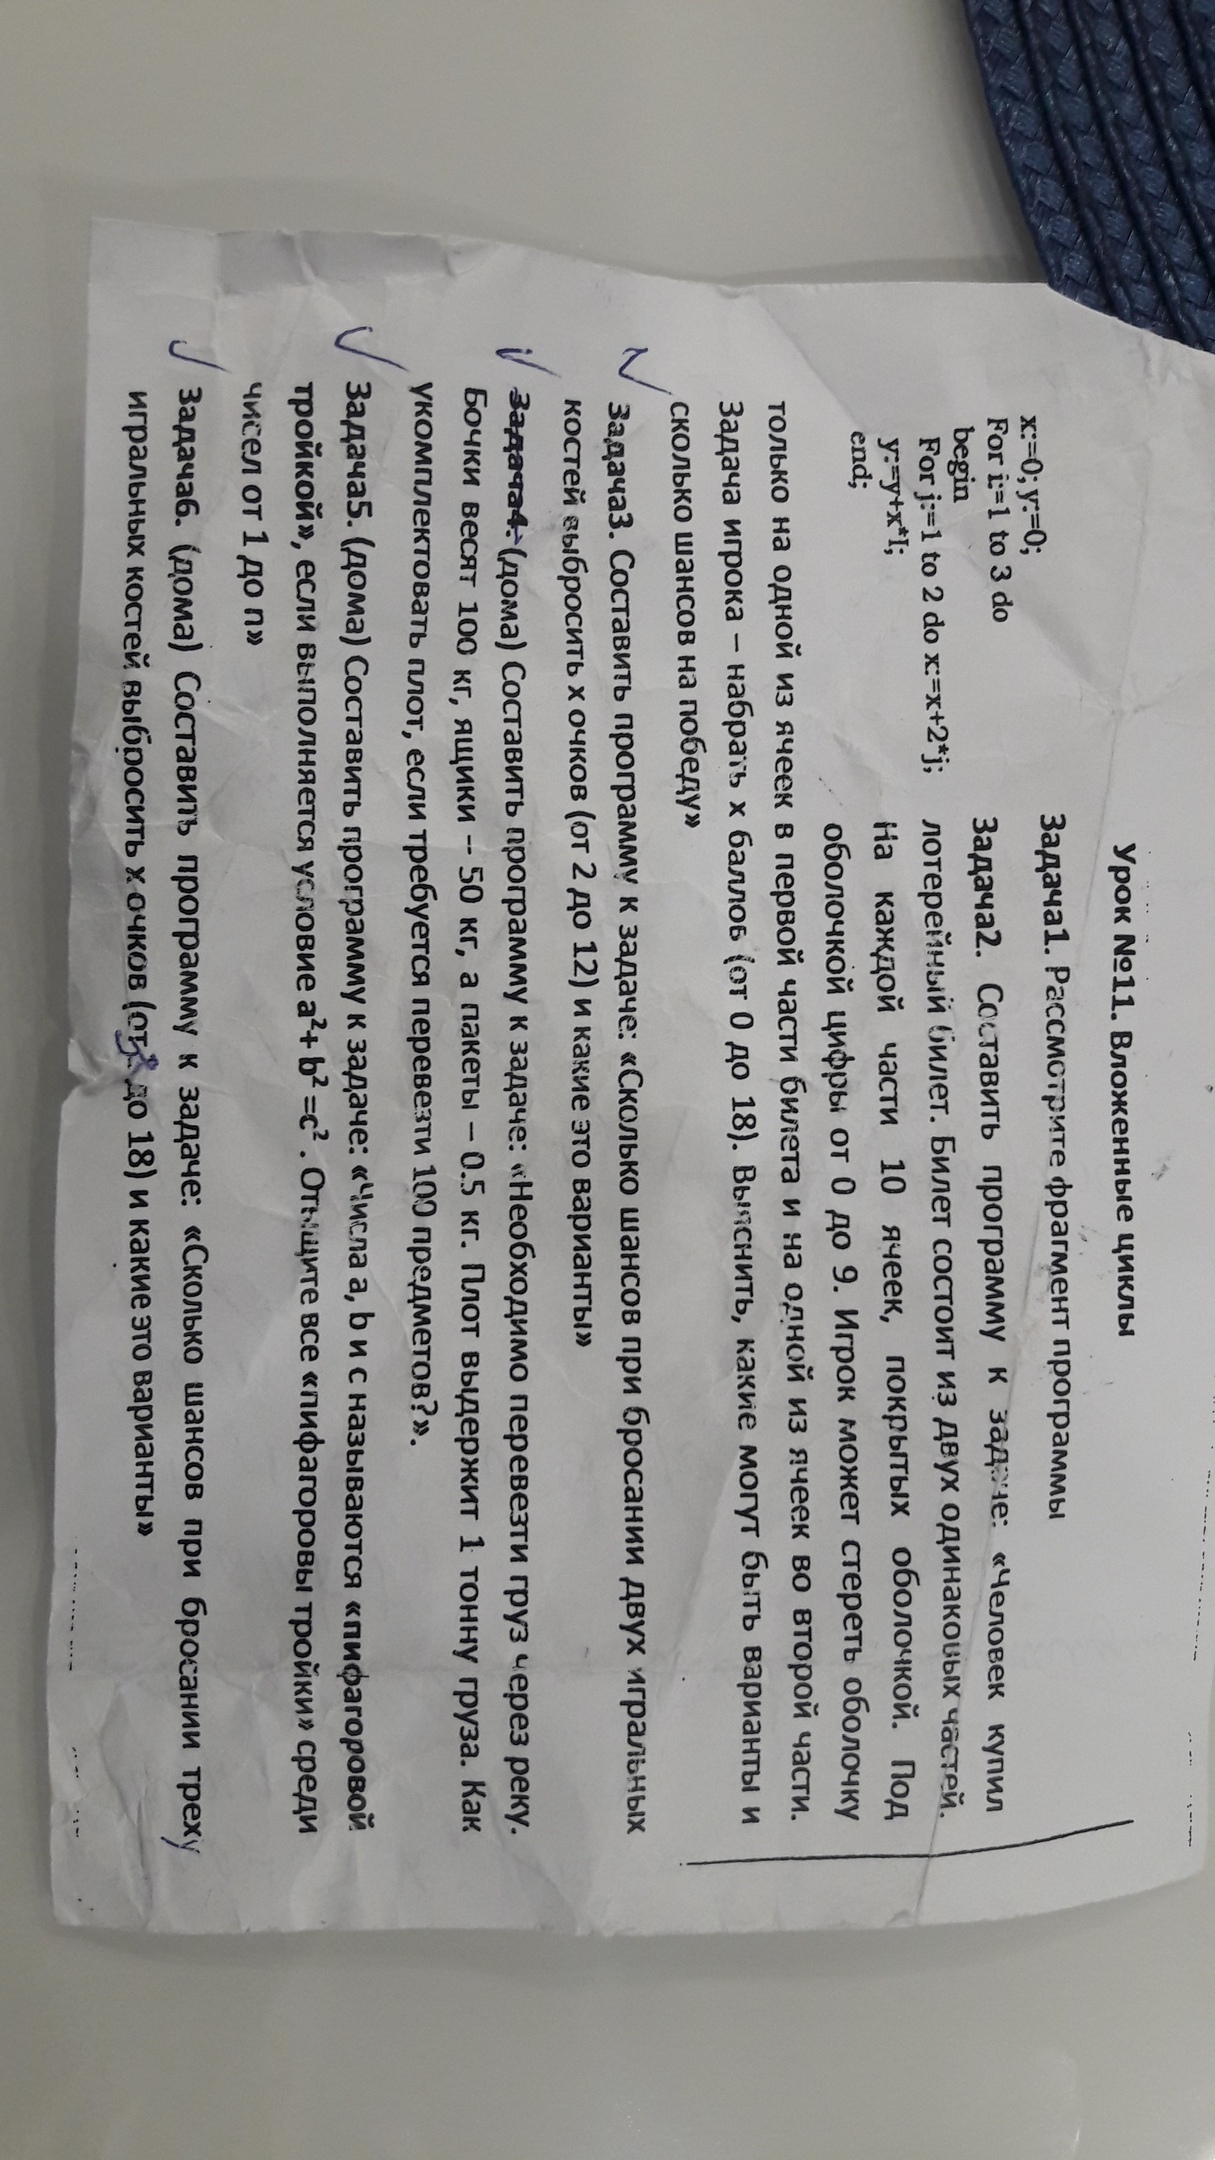 Урок №11. Вложенные циклы
Задача1. Рассмотрите фрагмент программы
x:=0; y:=0;
For i:=1 to 3 do
begin
For j:=1 to 2 do x:=x+2*j;
y:=y+x*I;
end;
Задача2. Составить программу к задаче: «Человек купил
лотерейный билет. Билет состоит из двух одинаковых частей.
На каждой части 10 ячеек, покрытых оболочкой. Под
оболочкой цифры от 0 до 9. Игрок может стереть оболочку
только на одной из ячеек в первой части билета и на одной из ячеек во второй части.
Задача игрока – набрать х баллов (от 0 до 18). Выяснить, какие могут быть варианты и
сколько шансов на победу»
Задача3. Составить программу к задаче: «Сколько шансов при бросании двух игральных
костей выбросить х очков (от 2 до 12) и какие это варианты»
Задача4. (дома) Составить программу к задаче: «Необходимо перевезти груз через реку.
Бочки весят 100 кг, ящики -- 50 кг, а пакеты – 0.5 кг. Плот выдержит 1 тонну груза. Как
укомплектовать плот, если требуется перевезти 100 предметов?».
Задача5. (дома) Составить программу к задаче: «Числа a, b и c называются «пифагоровой
тройкой», если выполняется условие a²+ b² =c² . Отыщите все «пифагоровы тройки» среди
чисел от 1 до n»
Задача6. (дома) Составить программу к задаче: «Сколько шансов при бросании трех
игральных костей выбросить х очков (от до 18) и какие это варианты»